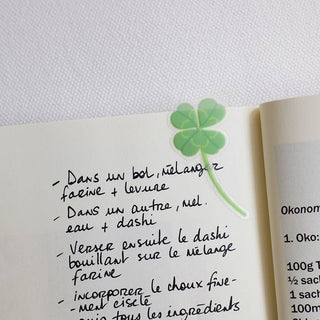 - Dans un bol, mélanger
farine + levure
- Dans un autre, mel.
eau + dashi
- Verser ensuite le dashi
bouillant sur le mélange
farine
- incorporer le choux fine-
- ment ciselé
tous les ingrédients
Okonom
1. Oko:
100g T
½ sac
1 sach
100m